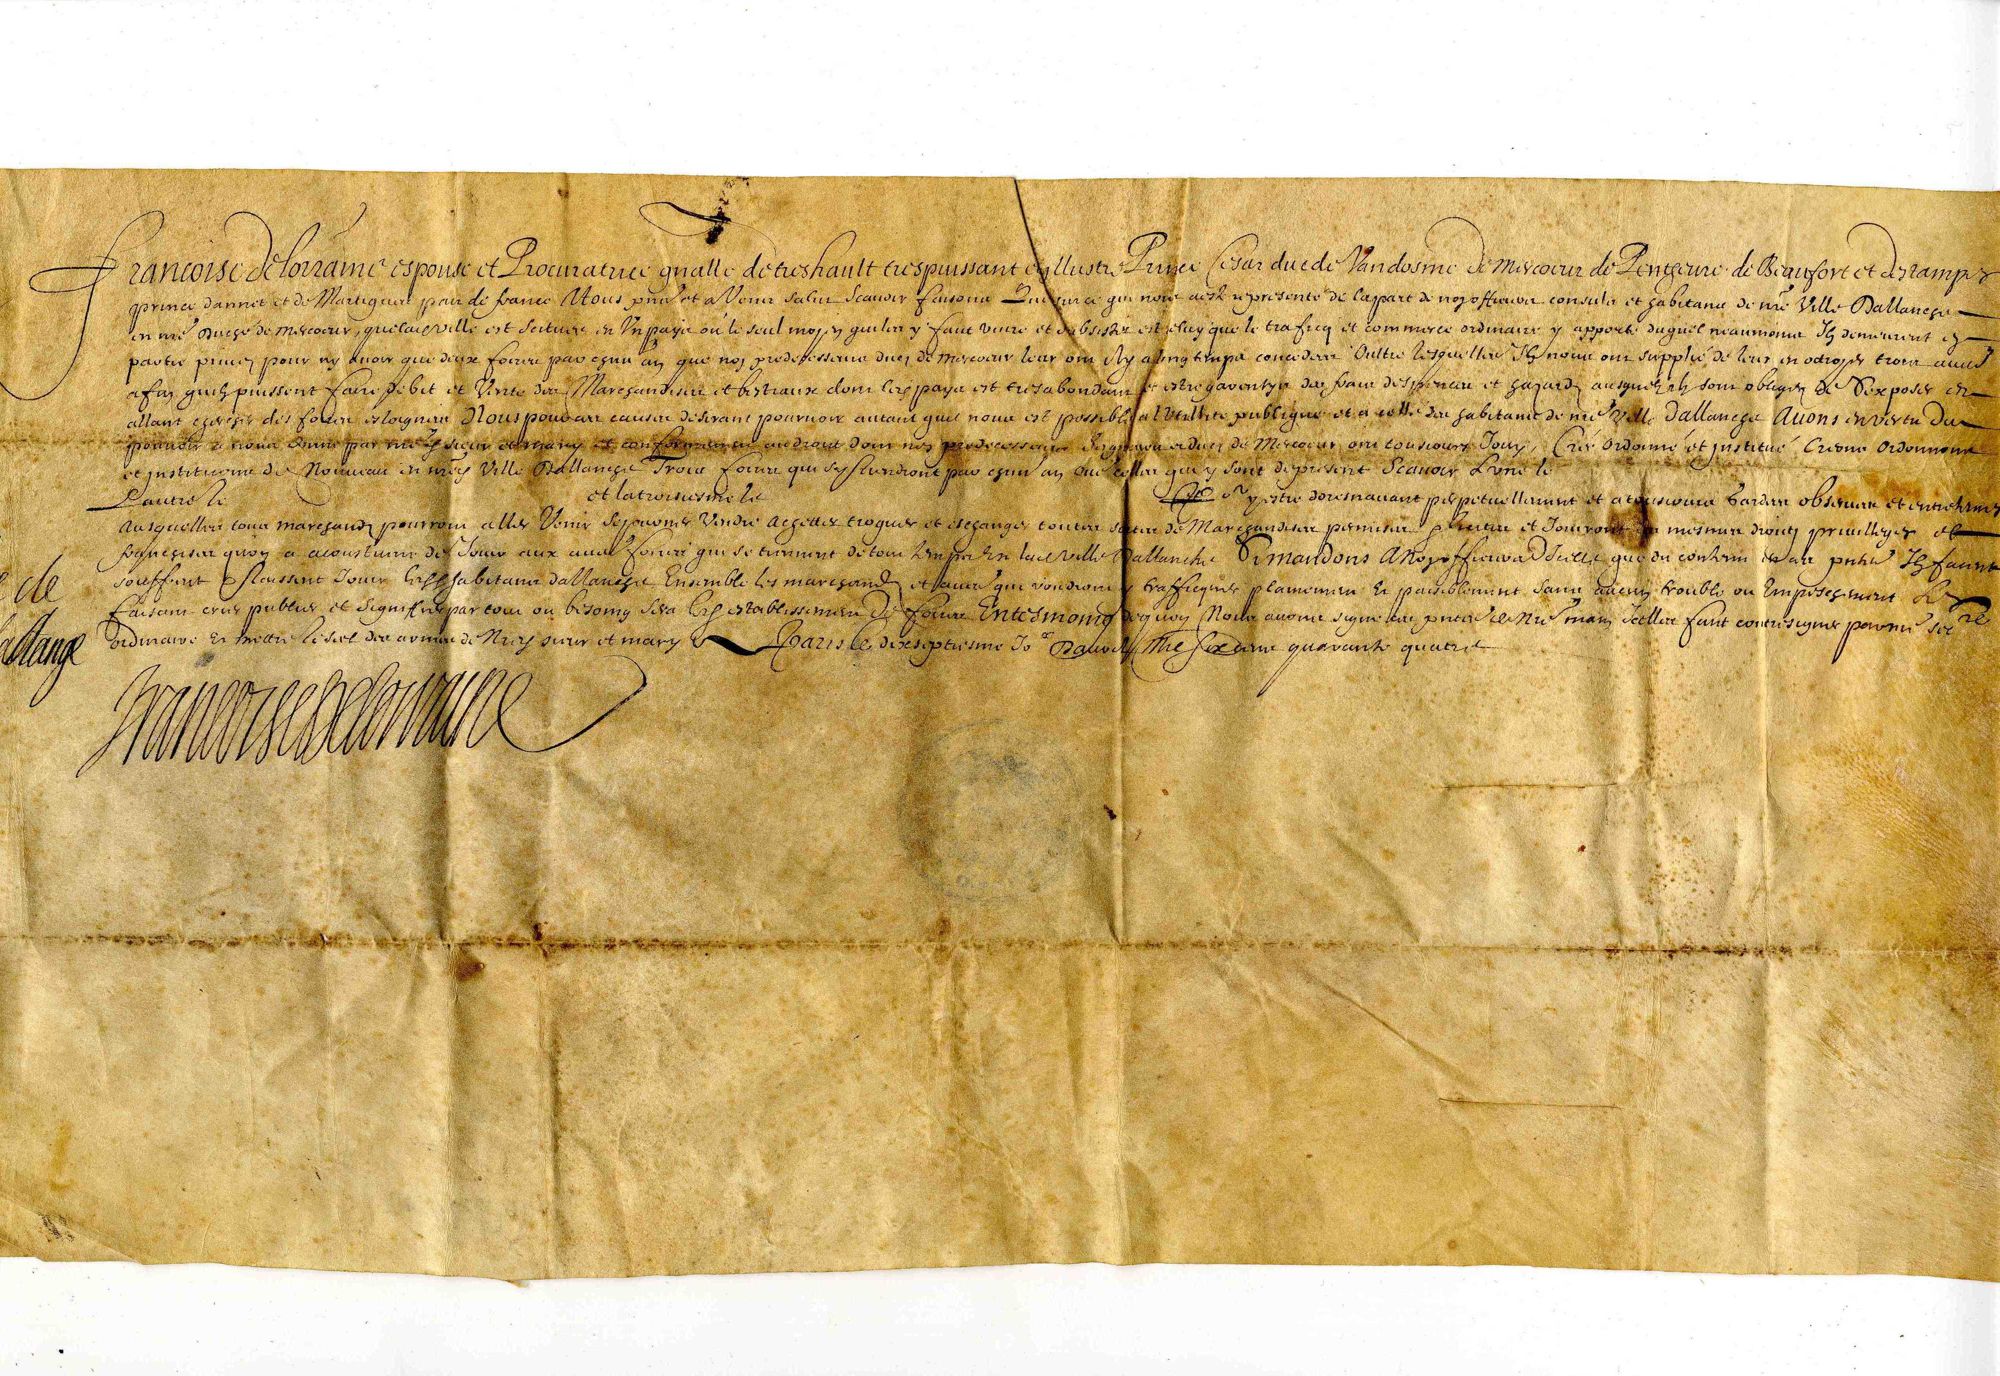 Francoise de lorraine espouse et Procuratrice gnalle de treshault trespuissant et Illustre Prince Cesar duc de Vandosme de Mercoeur de Pentheure de Beaufort et destampes
prince dannet et de Martigues pair de france A tous pnts et a Venir salut Scauoir faisons Que sur ce qui nous a esté representé de la part de noz officiers consulz et habitans de nre Ville Dallanche
en nre Duché de mercoeur, que lad ville est scituee en Un pays ou le seul moyen quil y a faut viure et subsister est celuy que le traficq et commerce ordinaire y apporte duquel neaumoins Ilz demeurent en
partie priuez pour ny auoir que deux foires par chun an que noz predecesseurs ducz de mercoeur leur ont il y a longtemps concedees Oultre lesquelles Ilz nous ont supplié de leur en octroyer trois autres
afin quilz puissent faire debit et Vente des Marchandises et bestiaux dont led pays est tres abondant et estre des frais despences et hazardz ausquelz ilz sont obligez de Sexposer en
allant chercher des foires esloignees Nous pour ces causes desirant pourvoir autant quil nous est possible a lUtillité publique et a celle des habitans de nre Ville dallanche Auons en vertu du
pouuoir a nous donné par nred sieur et mary et conformement au droit dont noz predecesseurs Seigneurs et ducz de Mercoeur ont tousiours Jouy, Créé ordonné et jnstitué Creons ordonnons
et jnstituons de Nouueau en nred Ville Dallanche Trois foires qui sy tiendront par chun an outre celles qui y sont de present Scauoir Lune le
Lautre le et la troisiesme le Pour y estre doresnauant perpetuellement et a tousiours gardees obseruees et entretenues
Ausquelles tous marchands pourront aller Venir Sejourner Vendre Achetter troquer et eschanger toutes sortes de Marchandises permises et licites et Jouiront des mesmes droitz priuilleges et
franchises quon a acoustumé de Jouir aux autres foires qui se tiennent de tout temps en lad ville Dallanche Si mandons A Noz officiers Dicelle que du contenu en ces pntes Ilz facent
souffrent et laissent Jouir lesd habitans dallanche Ensemble les marchands et autres qui voudront y trafficquer plainement et paisiblement sans aucun trouble ou Empeschement Et
faisant crier publier et signiffier par tout ou besoing sera led establissement de foires En tesmoing de quoy Nous auons signé ces pntes de Nre main Icelles fait contresigner par nre secre
ordinaire et mettre le scel des armes de Nred sieur et mary A Paris le dixseptiesme Jor Dauril Mil six cens quarante quatre
Francoise de lorraine
de
allanche